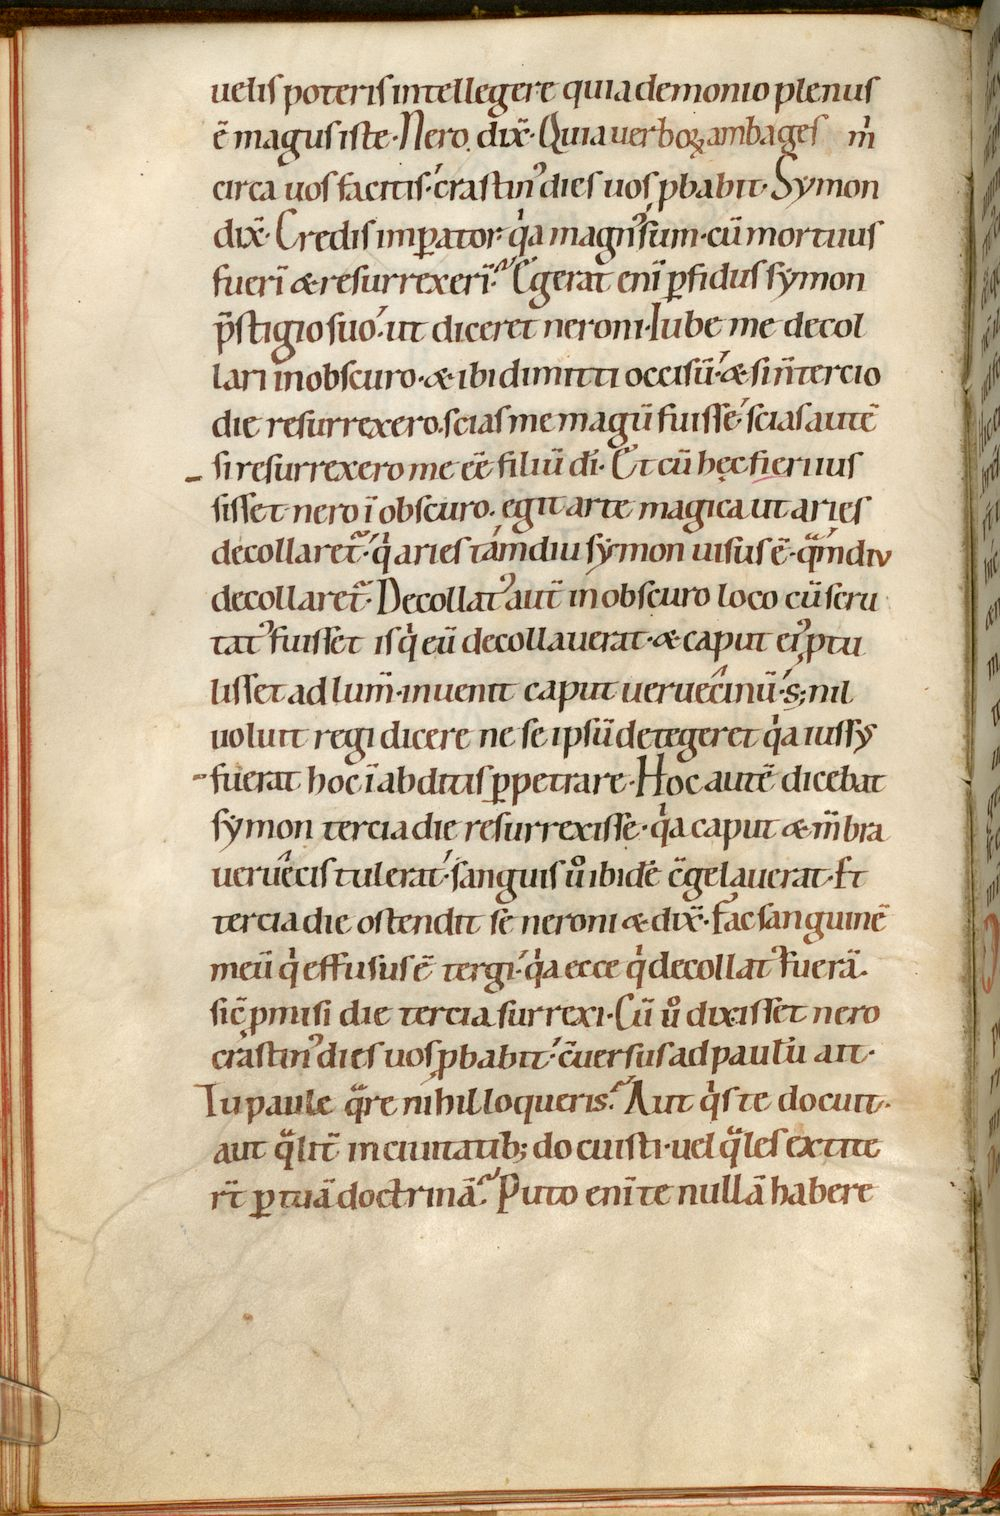 uelis poteris intellegere quia demonio plenus
ē magus iste · Nero dix̄ · Quia uerboꝝ ambages m̓
circa uos facitis · crastin᾽ dies uos ꝓbabit · Symon
dix̄ · Credis imꝑator · qͥa magn᾽ sum · cū mortuus
fuerī & resurrexerī · Egerat enī ꝑfidus symon
p̄stigio suo · ut diceret neroni · Iube me decol
lari in obscuro · & ibi dimitti occisū · & si ñ tercio
die resurrexero · scias me magū fuisse · scias autē
si resurrexero me eē filiū dī · Et cū hęc fieri ius
sisset nero ī obscuro · egit arte magica ut aries
decollaret᾽ · qͥ aries tamdiu symon uisus ē · qᵃmdiu
decollaret᾽ · Decollat᾽ aut̄ in obscuro loco cū scru
tat᾽ fuisset is qͥ eū decollauerat · & caput ei᾽ ꝓtu
lisset ad lum̄ · inuenit caput ueruecinū · s; nil
uoluit regi dicere ne se ipsū detegeret qͥa iussꝰ
fuerat hoc ī abditis ꝑpetrare · Hoc autē dicebat
symon tercia die resurrexisse · qͥa caput & m̄bra
ueruecis tulerat · sanguis ůo ibidē c̄gelauerat · Et
tercia die ostendit se neroni & dix̄ · Fac sanguinē
meū qͥ effusus ē tergi · qͥa ecce qͥ decollat᾽ fuerā ·
sic̄ ꝓmisi die tercia surrexi · Cū ůo dixisset nero
crastin᾽ dies uos ꝓbabit · c̄uersus ad paulū ait ·
Tu paule qᵃre nihil loqueris · Aut qͥs te docuit ·
aut qᵃlit̄ in ciuitatib; docuisti · uel qᵃles extite
rt̄ ꝑ tuā doctrinā · Puto enī te nullā habere